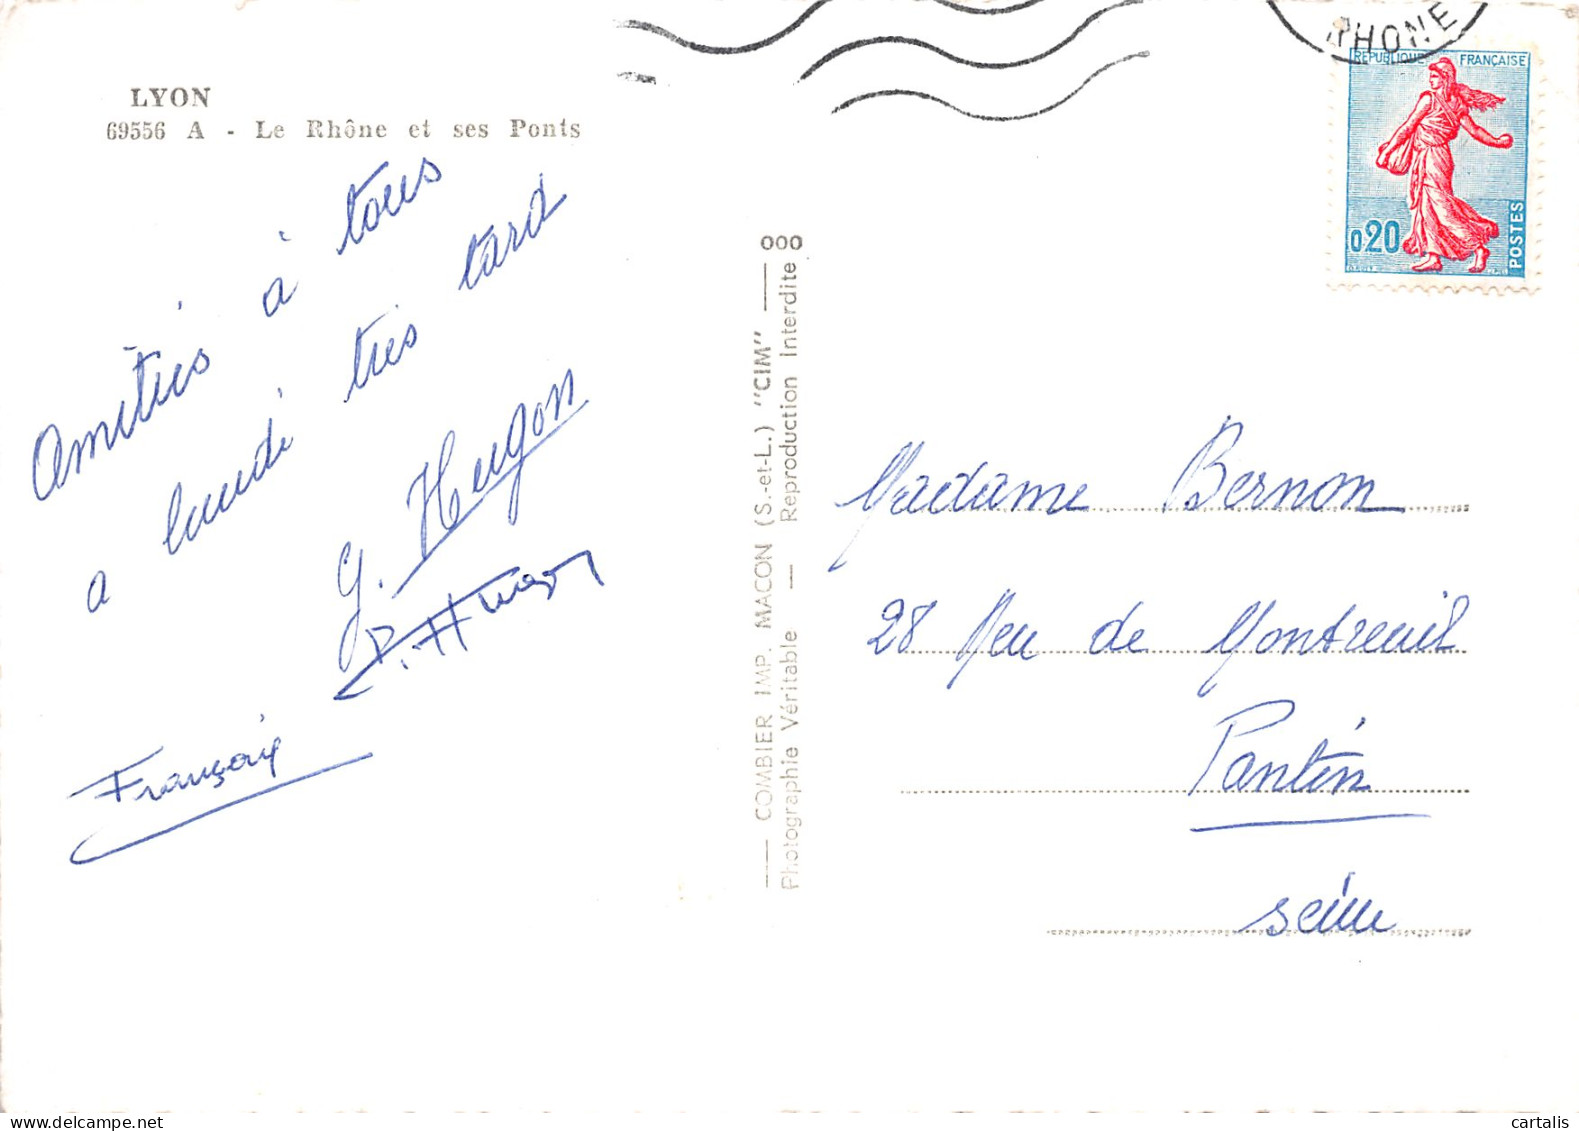 RHONE
REPUBLIQUE FRANÇAISE
0,20
POSTES
LYON
69556 A - Le Rhône et ses Ponts
Amitiés à tous
a lundi très tard
G. Hugon
P. Hugon
François
COMBIER IMP. MACON (S.-et-L.) "CIM"
Photographie Véritable — Reproduction Interdite
Madame Bernon
28 Rue de Montreuil
Pantin
Seine
cartalis